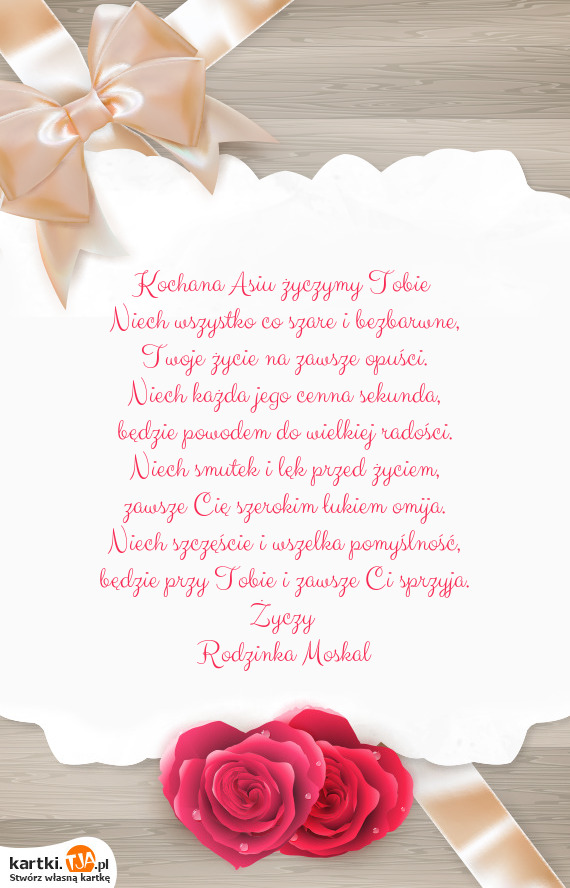 Kochana Asiu życzymy Tobie
Niech wszystko co szare i bezbarwne,
Twoje życie na zawsze opuści.
Niech każda jego cenna sekunda,
będzie powodem do wielkiej radości.
Niech smutek i lęk przed życiem,
zawsze Cię szerokim łukiem omija.
Niech szczęście i wszelka pomyślność,
będzie przy Tobie i zawsze Ci sprzyja.
Życzy
Rodzinka Moskal
kartki.TJA.pl
Stwórz własną kartkę